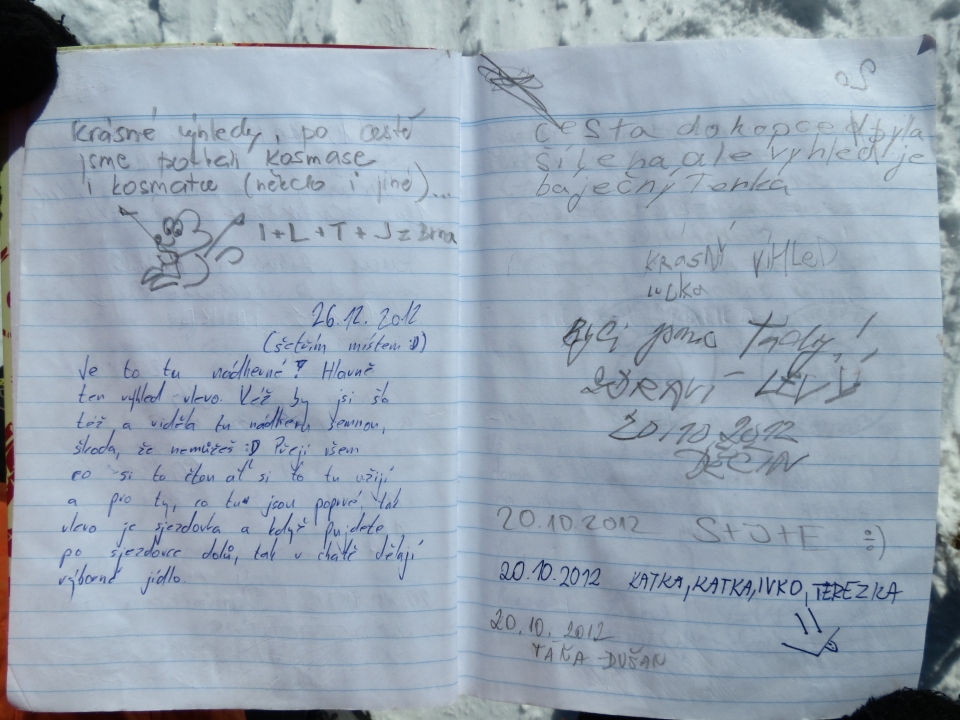 krásné výhledy, po cestě
jsme potkali kosmase
i kosmatce (někdo i jiné)...
I + L + T + J z Brna
26.12.2012
(šetřím místem :D)
Je to tu nádherné! Hlavně
ten výhled vlevo. Kéž by jsi šla
též, a viděla tu nádheru semnou,
škoda, že nemůžeš :D Přeji všem
co si to čtou ať si to tu užijí
a pro ty, co tu jsou poprvé, tak
vlevo je sjezdovka a když pujdete
po sjezdovce dolů, tak v chatě dělají
výborné jídlo.
cesta do kopce byla
šílena, ale výhled je
baječný Tonka
KRÁSNÝ VÍHLED
LUCKA
Byli jsme Tady!
ZDRAVÍ LÉVÍ
20.10.2012
DĚČÍN
20.10.2012 S+J+E :)
20.10.2012 KATKA, KATKA, IVKO, TEREZKA
20.10.2012
TÁŇA DUŠAN